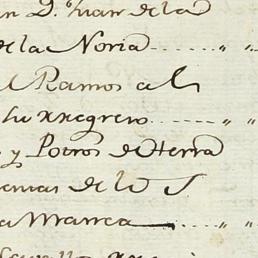 n D. Juan de la
de la Noria ...... " "
l Ramos al
Lu xxegrero ...... " "
y Potros de tierra
emas de lo S
a Marca — " "